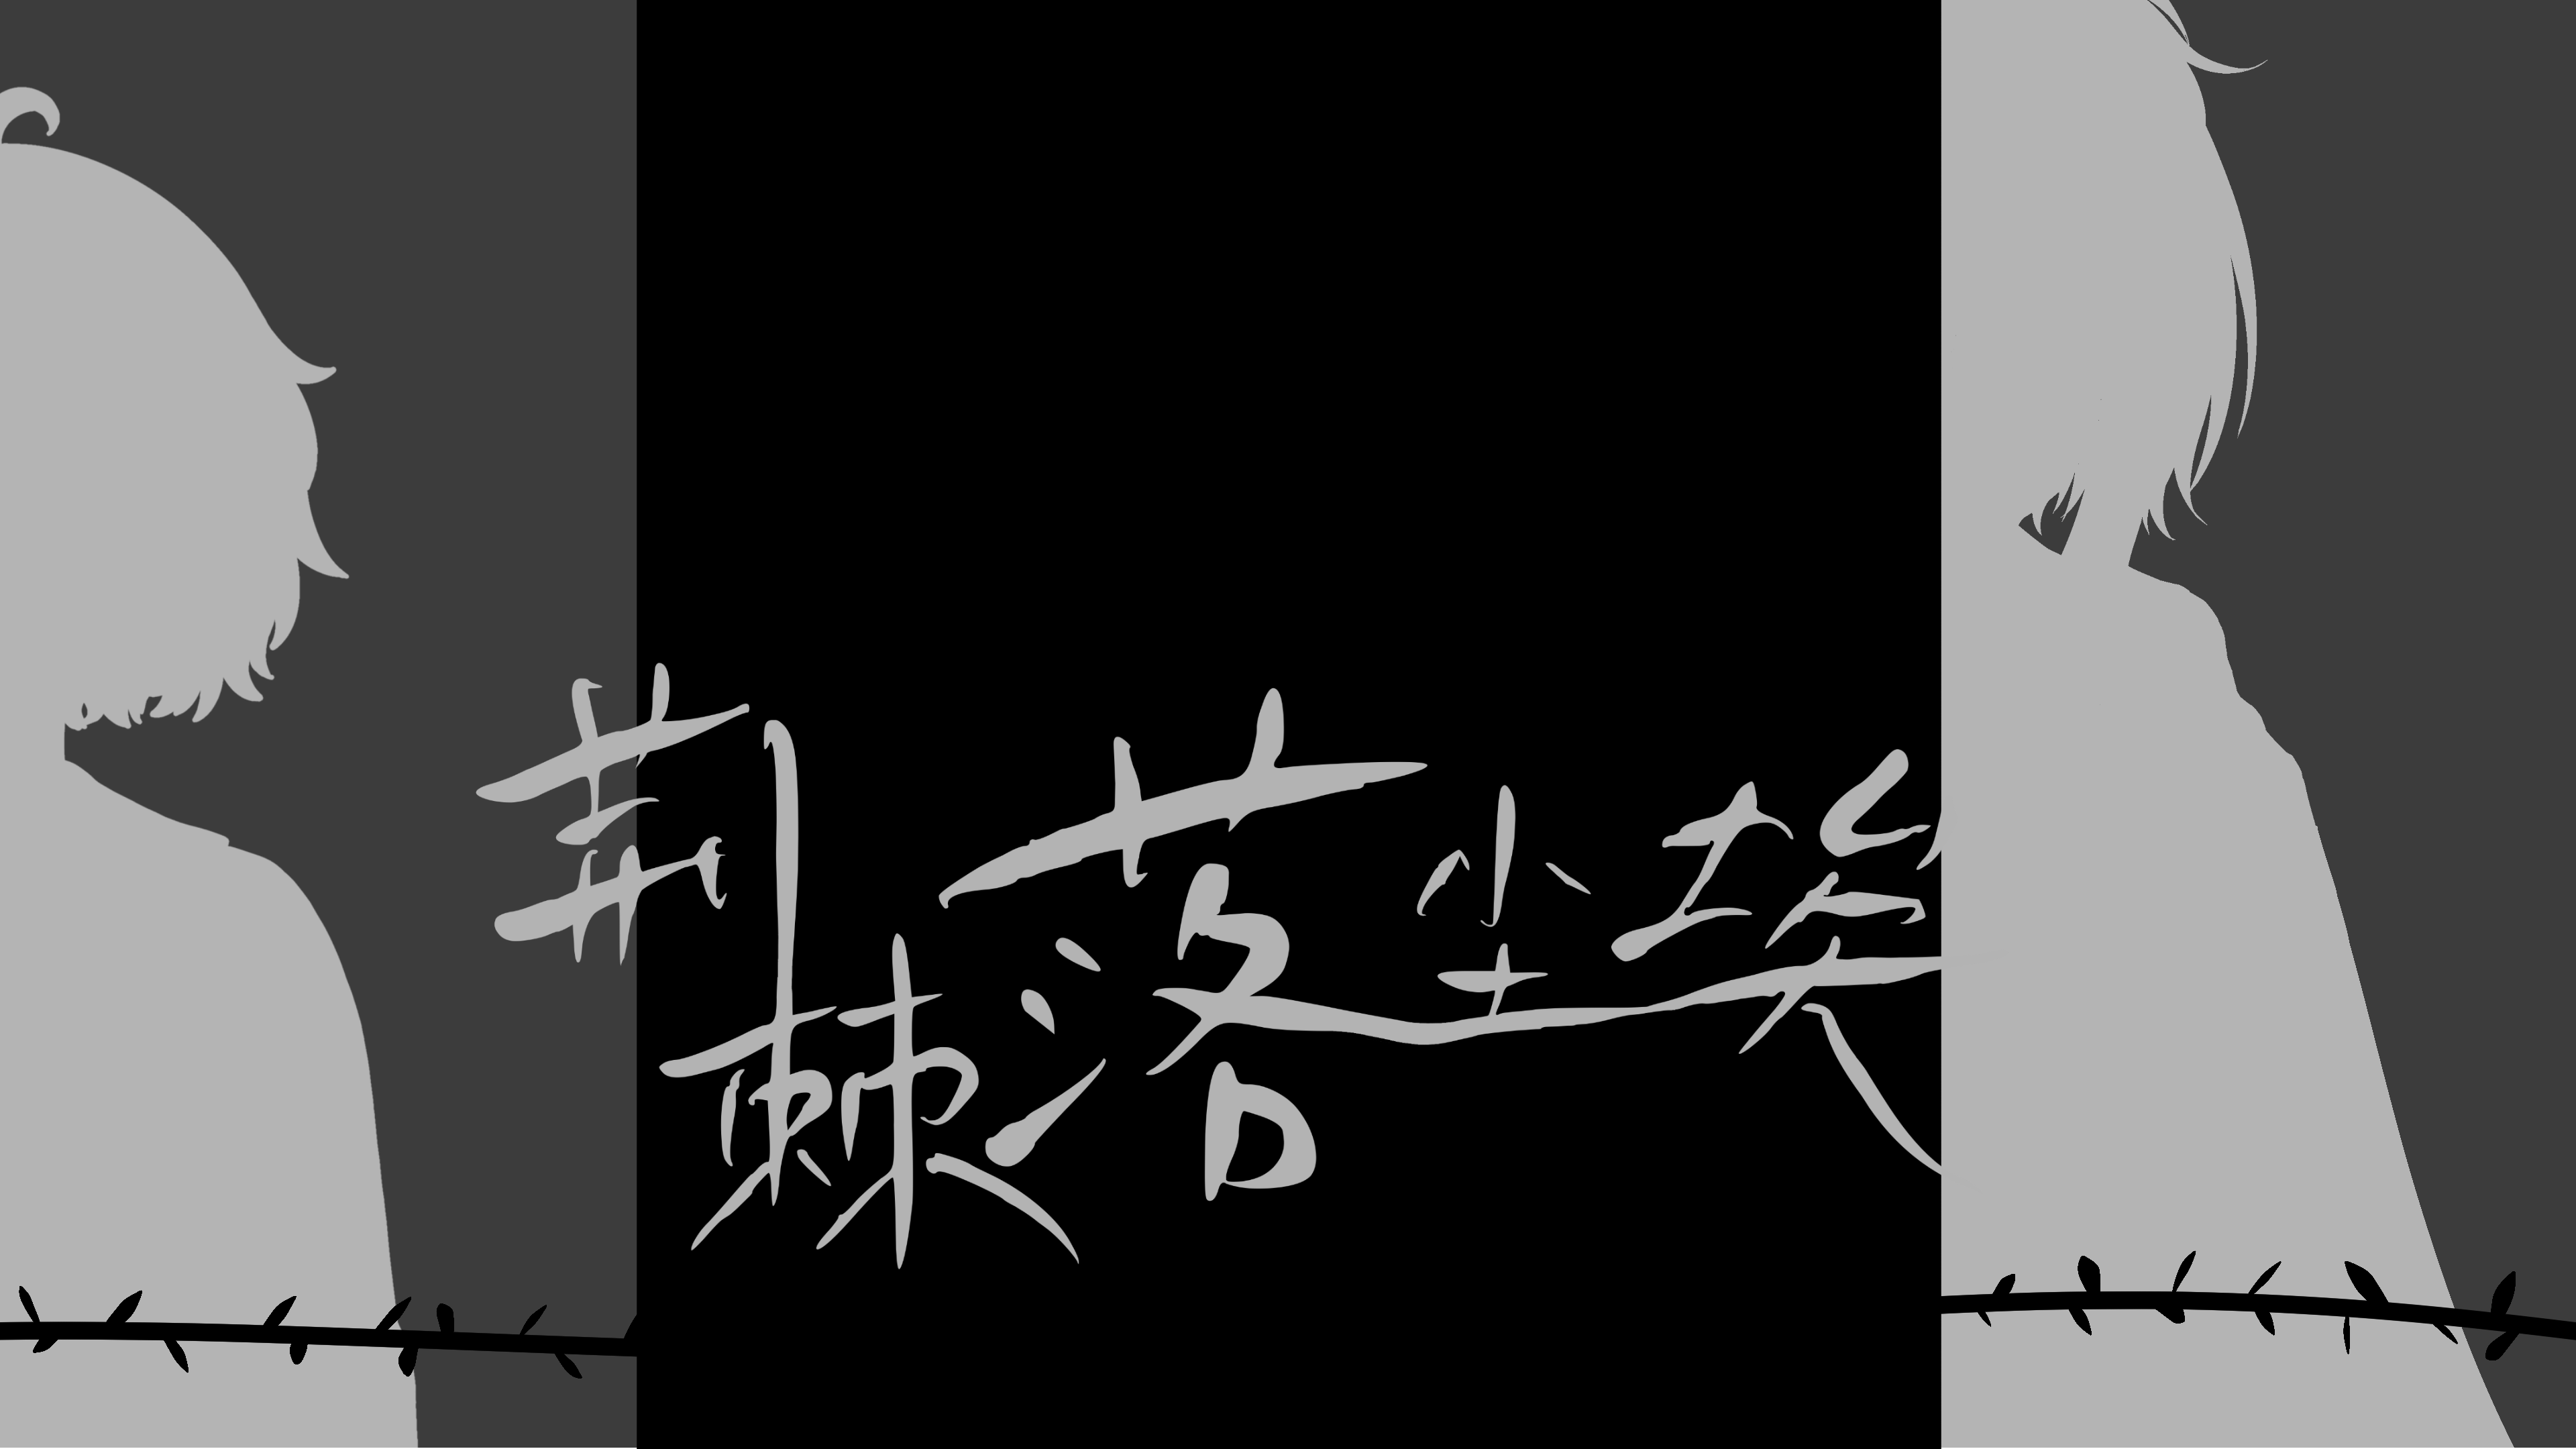 荆棘落尘埃